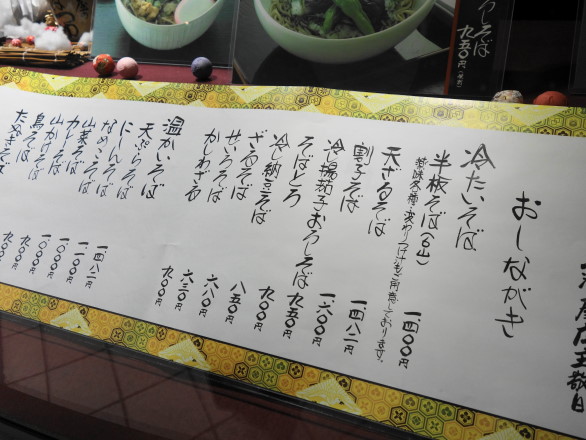 ろしそば
九五〇円
主敬白
おしながき
冷たいそば
半板そば(6山) 一、四〇〇円
薬味各種・変わりつけ汁もご用意しております。
天ざるそば 一、四八二
割子そば 一、六〇〇円
冷し揚茄子おろしそば 九五〇円
そばとろ 九〇〇円
冷し納豆そば 八五〇
ざるそば 六八〇円
せいろそば 六三〇円
かじわざる 九〇〇円
温かいそば
天ぷらそば 一、四八二
にしんそば 一、一〇〇円
なめこそば 一、〇〇〇円
山菜そば 一、〇〇〇円
カレーそば 一、〇〇〇円
山かけそば 九〇〇
鳥そば 九〇〇
たぬきそば